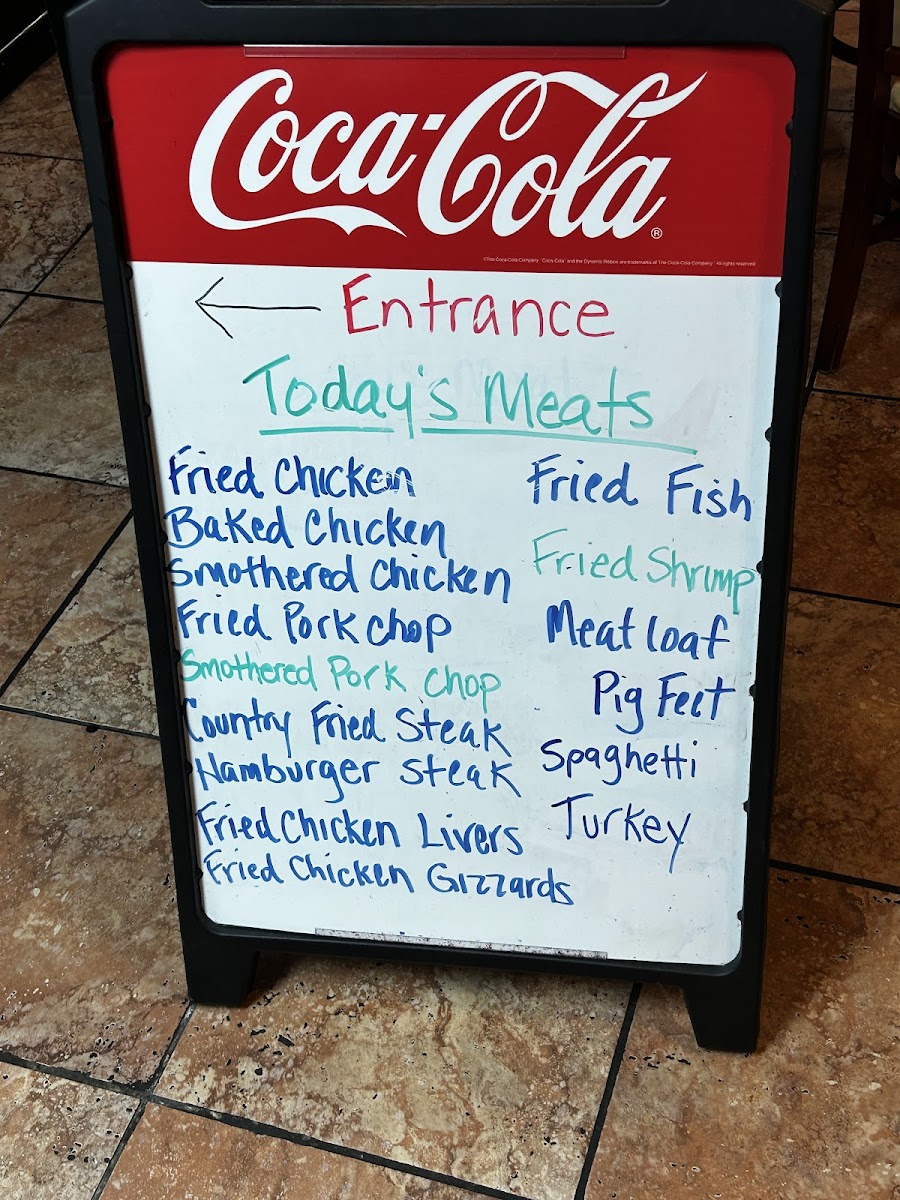 Coca-Cola
®
©The Coca-Cola Company. "Coca-Cola" and the Dynamic Ribbon are trademarks of The Coca-Cola Company. All rights reserved.
← Entrance
Today's Meats
Fried Chicken
Baked Chicken
Smothered Chicken
Fried Pork chop
Smothered Pork chop
Country Fried Steak
Hamburger Steak
Fried Chicken Livers
Fried Chicken Gizzards
Fried Fish
Fried Shrimp
Meat loaf
Pig Feet
Spaghetti
Turkey